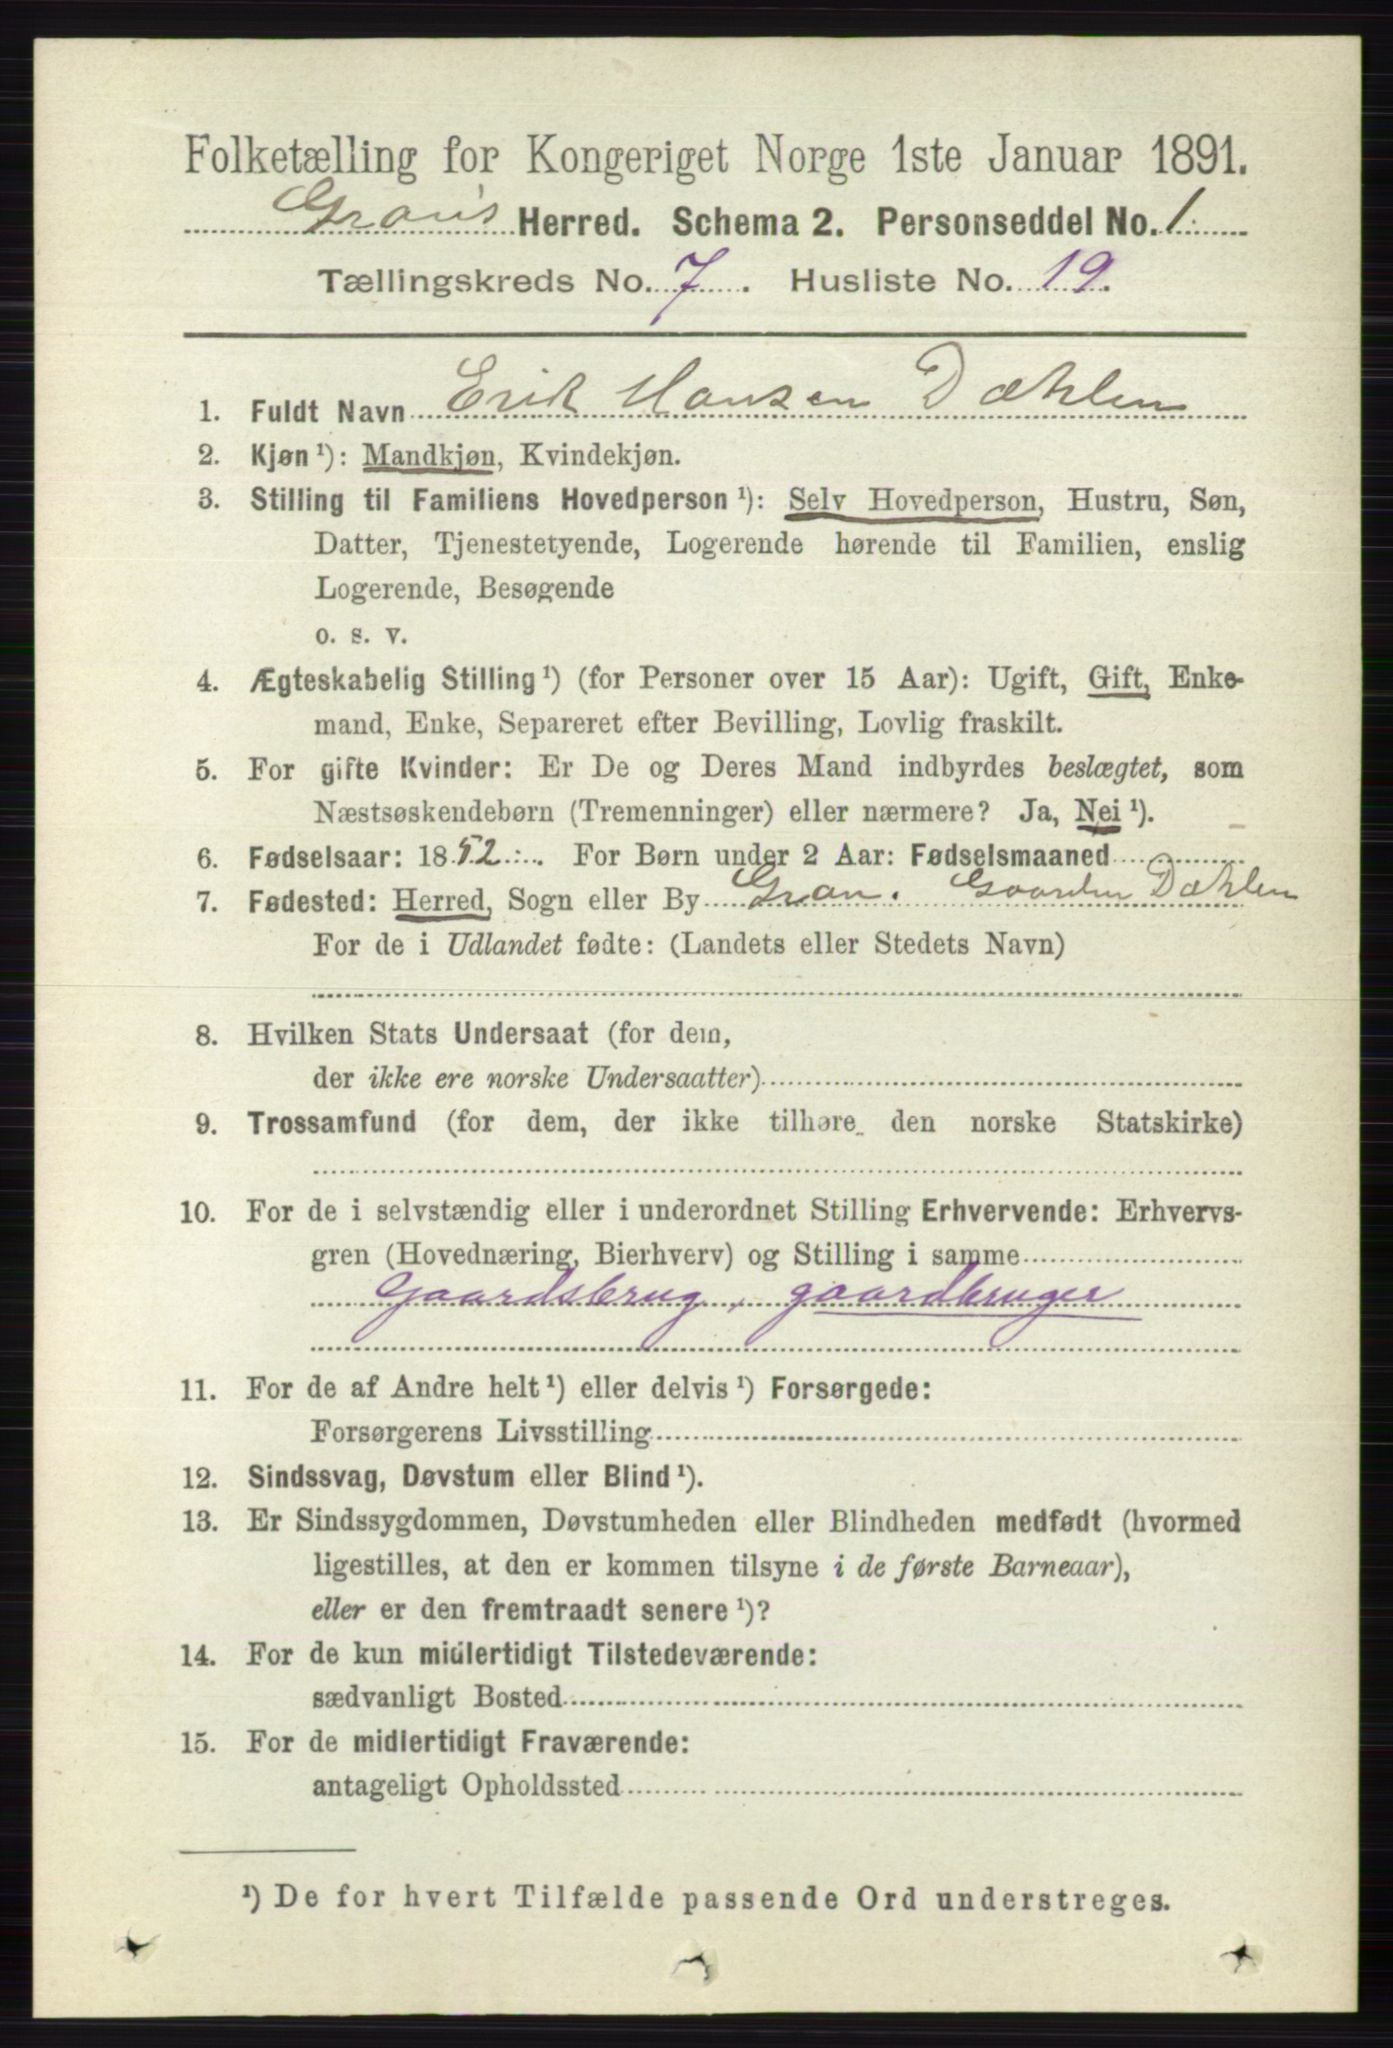 Folketælling for Kongeriget Norge 1ste Januar 1891.
Grans Herred. Schema 2. Personseddel No. 1.
Tællingskreds No. 7. Husliste No. 19.
1. Fuldt Navn Erik Hansen Dæhlen
2. Kjøn ¹): Mandkjøn, Kvindekjøn.
3. Stilling til Familiens Hovedperson ¹): Selv Hovedperson, Hustru, Søn,
Datter, Tjenestetyende, Logerende hørende til Familien, enslig
Logerende, Besøgende
o. s. v.
4. Ægteskabelig Stilling ¹) (for Personer over 15 Aar): Ugift, Gift, Enke-
mand, Enke, Separeret efter Bevilling, Lovlig fraskilt.
5. For gifte Kvinder: Er De og Deres Mand indbyrdes beslægtet, som
Næstsøskendebørn (Tremenninger) eller nærmere? Ja, Nei ¹).
6. Fødselsaar: 1852. For Børn under 2 Aar: Fødselsmaaned
7. Fødested: Herred, Sogn eller By Gran. Gaarden Dæhlen
For de i Udlandet fødte: (Landets eller Stedets Navn)
8. Hvilken Stats Undersaat (for dem,
der ikke ere norske Undersaatter)
9. Trossamfund (for dem, der ikke tilhøre den norske Statskirke)
10. For de i selvstændig eller i underordnet Stilling Erhvervende: Erhvervs-
gren (Hovednæring, Bierhverv) og Stilling i samme
Gaardsbrug, gaardbruger
11. For de af Andre helt ¹) eller delvis ¹) Forsørgede:
Forsørgerens Livsstilling
12. Sindssvag, Døvstum eller Blind ¹).
13. Er Sindssygdommen, Døvstumheden eller Blindheden medfødt (hvormed
ligestilles, at den er kommen tilsyne i de første Barneaar),
eller er den fremtraadt senere ¹)?
14. For de kun midlertidigt Tilstedeværende:
sædvanligt Bosted
15. For de midlertidigt Fraværende:
antageligt Opholdssted
¹) De for hvert Tilfælde passende Ord understreges.